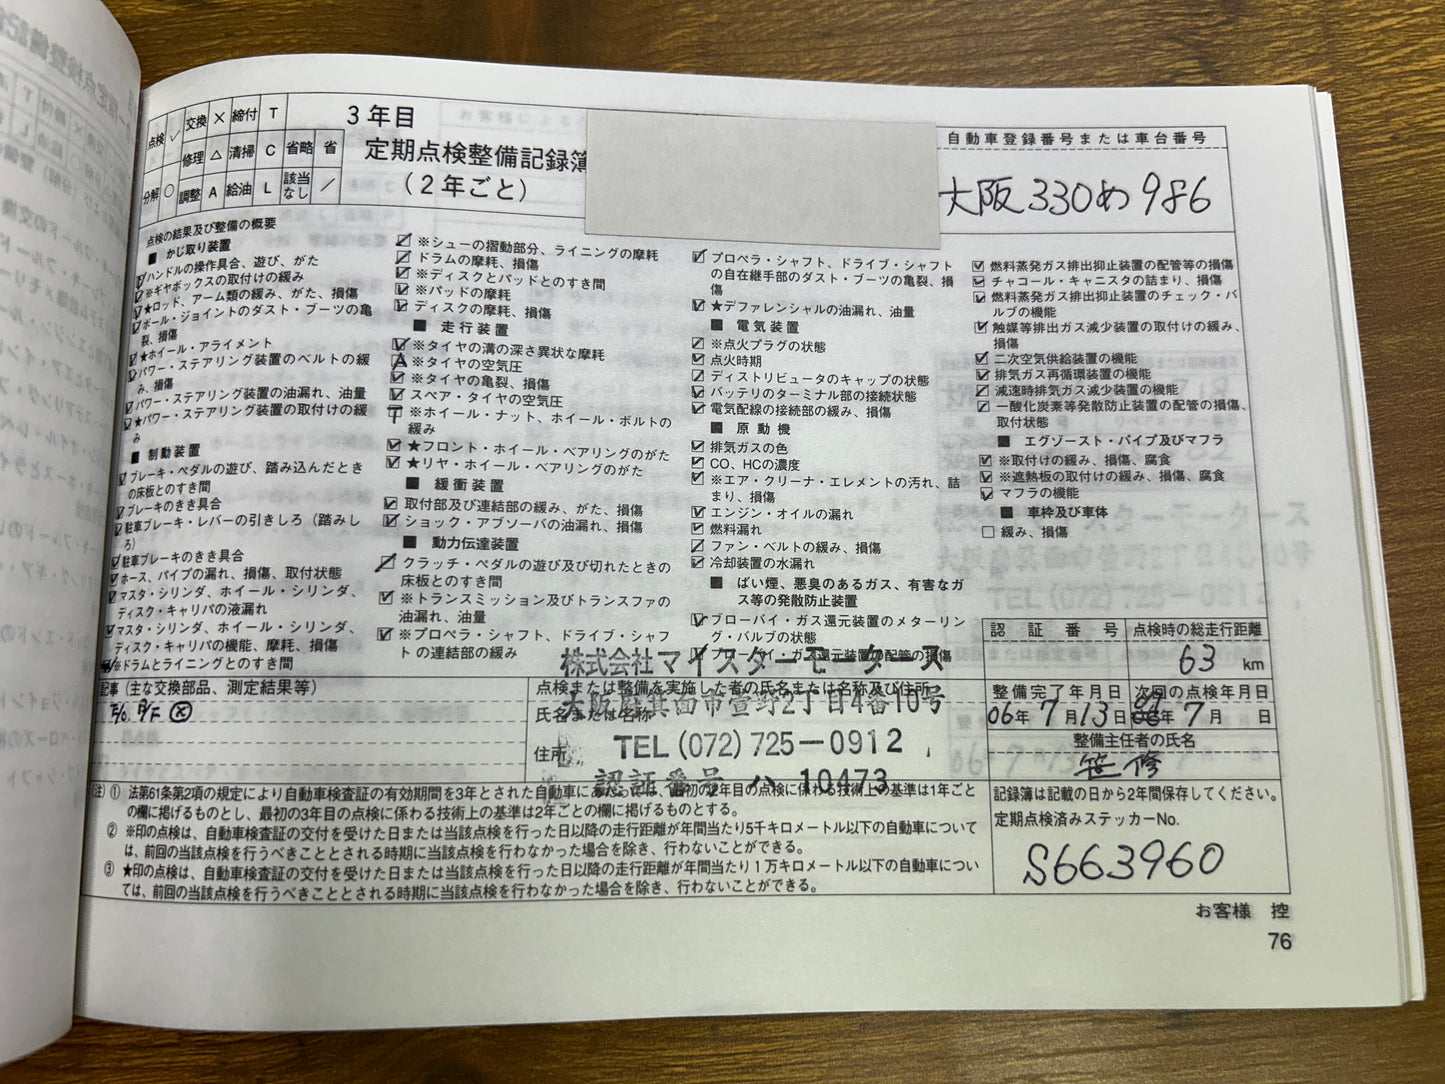 点検 ✓ 交換 × 締付 T
修理 △ 清掃 C 省略 省
分解 ○ 調整 A 給油 L 該当なし ／
3年目
定期点検整備記録簿
(2年ごと)
自動車登録番号または車台番号
大阪330め986
点検の結果及び整備の概要
■ かじ取り装置
ハンドルの操作具合、遊び、がた
※ギヤボックスの取付けの緩み
★ロッド、アーム類の緩み、がた、損傷
ボール・ジョイントのダスト・ブーツの亀
裂、損傷
★ホイール・アライメント
パワー・ステアリング装置のベルトの緩
み、損傷
パワー・ステアリング装置の油漏れ、油量
★パワー・ステアリング装置の取付けの緩
み
■ 制動装置
ブレーキ・ペダルの遊び、踏み込んだとき
の床板とのすき間
ブレーキのきき具合
駐車ブレーキ・レバーの引きしろ（踏みし
ろ）
駐車ブレーキのきき具合
ホース、パイプの漏れ、損傷、取付状態
マスタ・シリンダ、ホイール・シリンダ、
ディスク・キャリパの液漏れ
マスタ・シリンダ、ホイール・シリンダ、
ディスク・キャリパの機能、摩耗、損傷
※ドラムとライニングとのすき間
※シューの摺動部分、ライニングの摩耗
ドラムの摩耗、損傷
※ディスクとパッドとのすき間
※パッドの摩耗
ディスクの摩耗、損傷
■ 走行装置
※タイヤの溝の深さ異状な摩耗
A ※タイヤの空気圧
※タイヤの亀裂、損傷
スペア・タイヤの空気圧
T ※ホイール・ナット、ホイール・ボルトの
緩み
★フロント・ホイール・ベアリングのがた
★リヤ・ホイール・ベアリングのがた
■ 緩衝装置
取付部及び連結部の緩み、がた、損傷
ショック・アブソーバの油漏れ、損傷
■ 動力伝達装置
クラッチ・ペダルの遊び及び切れたときの
床板とのすき間
※トランスミッション及びトランスファの
油漏れ、油量
※プロペラ・シャフト、ドライブ・シャフ
トの連結部の緩み
プロペラ・シャフト、ドライブ・シャフト
の自在継手部のダスト・ブーツの亀裂、損
傷
★デファレンシャルの油漏れ、油量
■ 電気装置
※点火プラグの状態
点火時期
ディストリビュータのキャップの状態
バッテリのターミナル部の接続状態
電気配線の接続部の緩み、損傷
■ 原動機
排気ガスの色
CO、HCの濃度
※エア・クリーナ・エレメントの汚れ、詰
まり、損傷
エンジン・オイルの漏れ
燃料漏れ
ファン・ベルトの緩み、損傷
冷却装置の水漏れ
■ ばい煙、悪臭のあるガス、有害なガ
ス等の発散防止装置
ブローバイ・ガス還元装置のメターリン
グ・バルブの状態
ブローバイ・ガス還元装置の配管の損傷
燃料蒸発ガス排出抑止装置の配管等の損傷
チャコール・キャニスタの詰まり、損傷
燃料蒸発ガス排出抑止装置のチェック・バ
ルブの機能
触媒等排出ガス減少装置の取付けの緩み、
損傷
二次空気供給装置の機能
排気ガス再循環装置の機能
減速時排気ガス減少装置の機能
一酸化炭素等発散防止装置の配管の損傷、
取付状態
■ エグゾースト・パイプ及びマフラ
※取付けの緩み、損傷、腐食
※遮熱板の取付けの緩み、損傷、腐食
マフラの機能
■ 車枠及び車体
緩み、損傷
認証番号
点検時の総走行距離
63 km
記事（主な交換部品、測定結果等）
E/O. B/F ⊗
点検または整備を実施した者の氏名または名称及び住所
氏名または名称
住所
株式会社マイスターモータース
大阪府箕面市萱野2丁目4番10号
TEL (072) 725-0912
認証番号 ハ 10473
整備完了年月日
06年 7月13日
次回の点検年月日
年 7月 日
整備主任者の氏名
笹 修
(注) ① 法第61条第2項の規定により自動車検査証の有効期間を3年とされた自動車にあっては、最初の3年目の点検に係わる技術上の基準は1年ごと
の欄に掲げるものとし、最初の3年目の点検に係わる技術上の基準は2年ごとの欄に掲げるものとする。
② ※印の点検は、自動車検査証の交付を受けた日または当該点検を行った日以降の走行距離が年間当たり5千キロメートル以下の自動車について
は、前回の当該点検を行うべきこととされる時期に当該点検を行わなかった場合を除き、行わないことができる。
③ ★印の点検は、自動車検査証の交付を受けた日または当該点検を行った日以降の走行距離が年間当たり1万キロメートル以下の自動車につい
ては、前回の当該点検を行うべきこととされる時期に当該点検を行わなかった場合を除き、行わないことができる。
記録簿は記載の日から2年間保存してください。
定期点検済みステッカーNo.
S663960
お客様 控
76